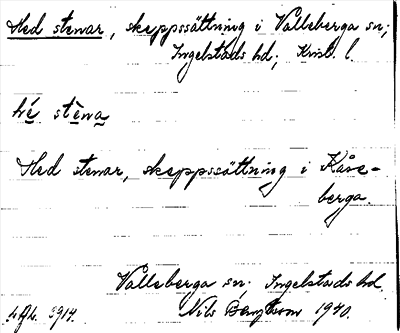 Hed stenar, skeppssättning i Valleberga sn;
Ingelstads hd; Krist. l.
hé stèna
Hed stenar, skeppssättning i Kåse-
berga.
Valleberga sn; Ingelstads hd.
Nils Bengtsson 1940.
3914.